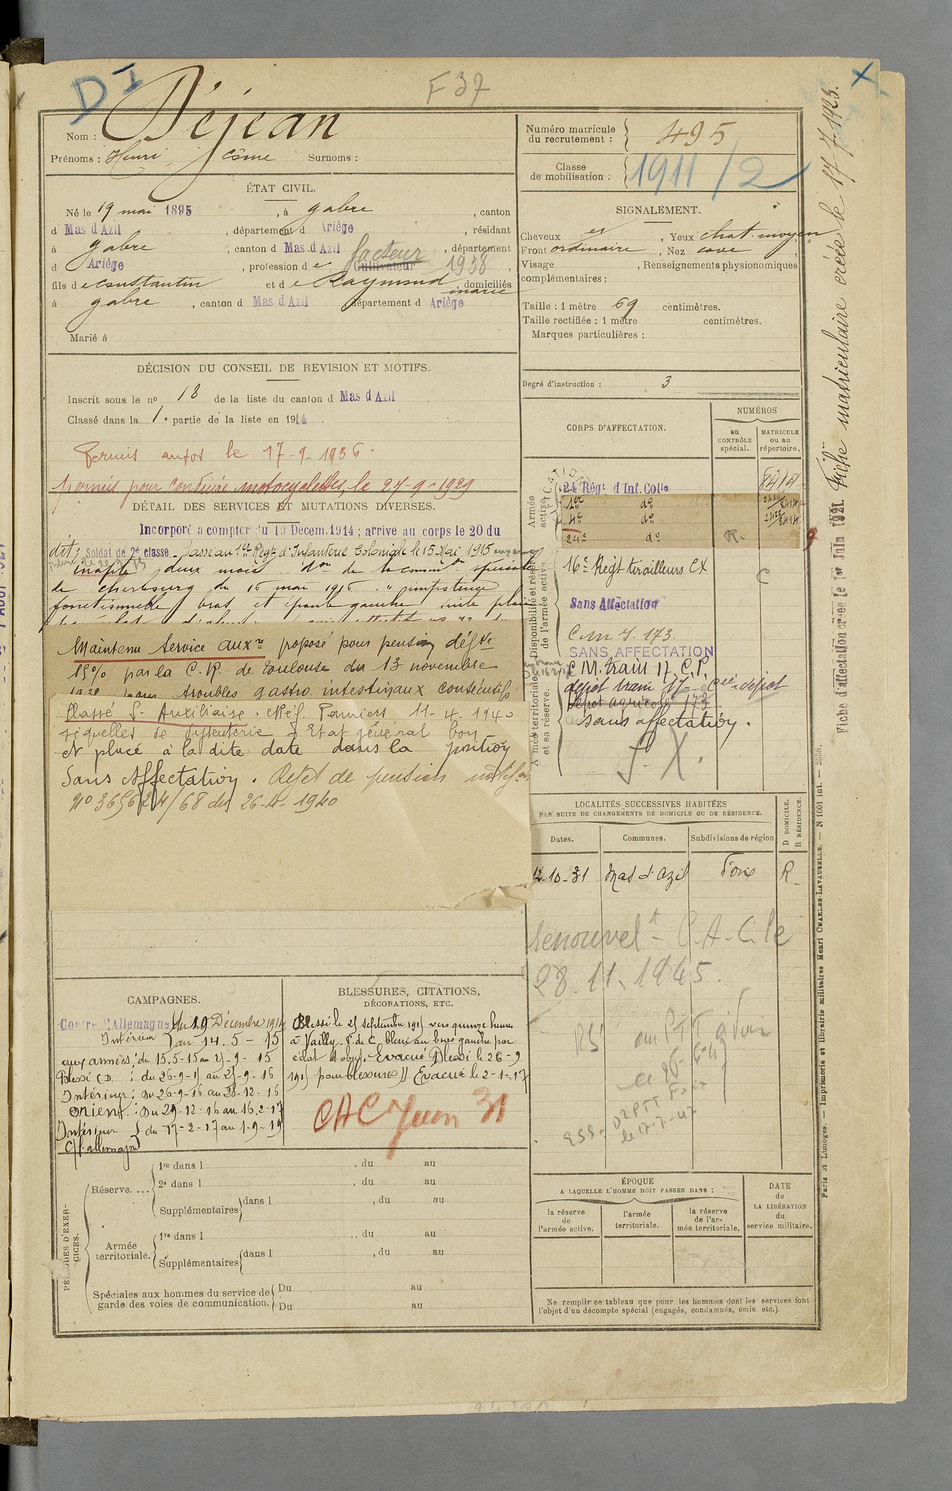 D I
F 37
Nom : Déjean
Prénoms : Henri Côme Surnoms :
Numéro matricule du recrutement : 495
Classe de mobilisation : 1911/2
ÉTAT CIVIL.
Né le 19 mai 1895, à gabre, canton
d Mas d'Azil, département d Ariège, résidant
à gabre, canton d Mas d'Azil, département
d Ariège, profession de Cultivateur facteur 1938,
fils de Constantin et de Raymond marie, domiciliés
à gabre, canton d Mas d'Azil département d Ariège
Marié à
SIGNALEMENT.
Cheveux, Yeux chat. moyen
Front ordinaire, Nez cave
Visage, Renseignements physionomiques
complémentaires :
Taille : 1 mètre 69 centimètres.
Taille rectifiée : 1 mètre centimètres.
Marques particulières :
Degré d'instruction : 3
DÉCISION DU CONSEIL DE REVISION ET MOTIFS.
Inscrit sous le n° 18 de la liste du canton d Mas d'Azil
Classé dans la 1e partie de la liste en 1914
Permis autos le 17-9-1936.
permis pour conduire motocyclettes, le 27-9-1929
DÉTAIL DES SERVICES ET MUTATIONS DIVERSES.
Incorporé à compter du 13 Décem. 1914 ; arrive au corps le 20 du
dit; Soldat de 2e classe. Passé au 1er Régt d'Infanterie Coloniale le 15 Mai 1915
Inapte deux mois don de la comm on spéciale
de Cherbourg du 16 mai 1916
fonctionnelle bras et épaule gauche suite plaie
Maintenu Service auxre proposé pour pension défve
15% par la C. R. de Toulouse du 13 novembre
pour troubles gastro intestinaux consécutifs
Classé S. Auxiliaire. C. Réf. Pamiers 11-4-1940
séquelles de dysenterie - Etat général bon
et placé à la dite date dans la position
Sans Affectation. Rejet de pension notifié
N° 365624/68 du 26-4-1940
CORPS D'AFFECTATION.
NUMÉROS
au CONTRÔLE spécial.
MATRICULE OU AU répertoire.
Armée active
24 Régt d'Inf. Colle 8414
1er do
4e do
24e do R.
Disponibilité et réserve de l'armée active
16e Regt tirailleurs CX
C
Sans Affectation
C.M.I. 173.
SANS AFFECTATION
Armée territoriale et sa réserve.
C M. train 17. C.R.
dépot train 17 - Cie dépot
Dépot agricole 173
Sans affectation.
S. X.
LOCALITÉS SUCCESSIVES HABITÉES
PAR SUITE DE CHANGEMENTS DE DOMICILE OU DE RÉSIDENCE.
Dates.
Communes.
Subdivisions de région
D DOMICILE. R RÉSIDENCE.
12-10-31 Mas d'Azil Foix R.
renouvelt C.A.C. le
28.11.1945.
RS au PTT à Foix
ESS. DR PTT Foix
le 17-7-47
CAMPAGNES.
Contre l'Allemagne du 19 Décembre 1914
Intérieur au 14.5-15
aux armées: du 15.5-15 au 25-9-15
Blessé CD : du 26-9-15 au 25-9-16
Intérieur: du 26-9-16 au 28-12-16
Orient: du 29-12-16 au 16.2-17
Intérieur du 17-2-17 au 1-9-19
C/ l'allemagne
BLESSURES, CITATIONS,
DÉCORATIONS, ETC.
Blessé le 25 septembre 1915 vers quinze heures
à Vailly. P. de C, blessé au bras gauche par
éclat d'obus. Evacué Blessé le 26-9
1915 pour blessures // Evacué le 2-1-17
CAC Juin 31
PÉRIODES D'EXERCICES.
Réserve....
1re dans l, du au
2e dans l, du au
Supplémentaires dans l, du au
Armée territoriale.
1re dans l, du au
Supplémentaires dans l, du au
Spéciales aux hommes du service de garde des voies de communication.
Du au
Du au
ÉPOQUE
A LAQUELLE L'HOMME DOIT PASSER DANS :
la réserve de l'armée active.
l'armée territoriale.
la réserve de l'armée territoriale.
DATE de LA LIBÉRATION du service militaire.
Ne remplir ce tableau que pour les hommes dont les services font
l'objet d'un décompte spécial (engagés, condamnés, omis, etc.).
Fiche matriculaire créée le 17.7.1923.
Fiche d'affectation créée le 1er Juin 1921
Paris et Limoges. — Imprimerie et librairie militaires Henri CHARLES-LAVAUZELLE. — N° 1001 int. — 2358.